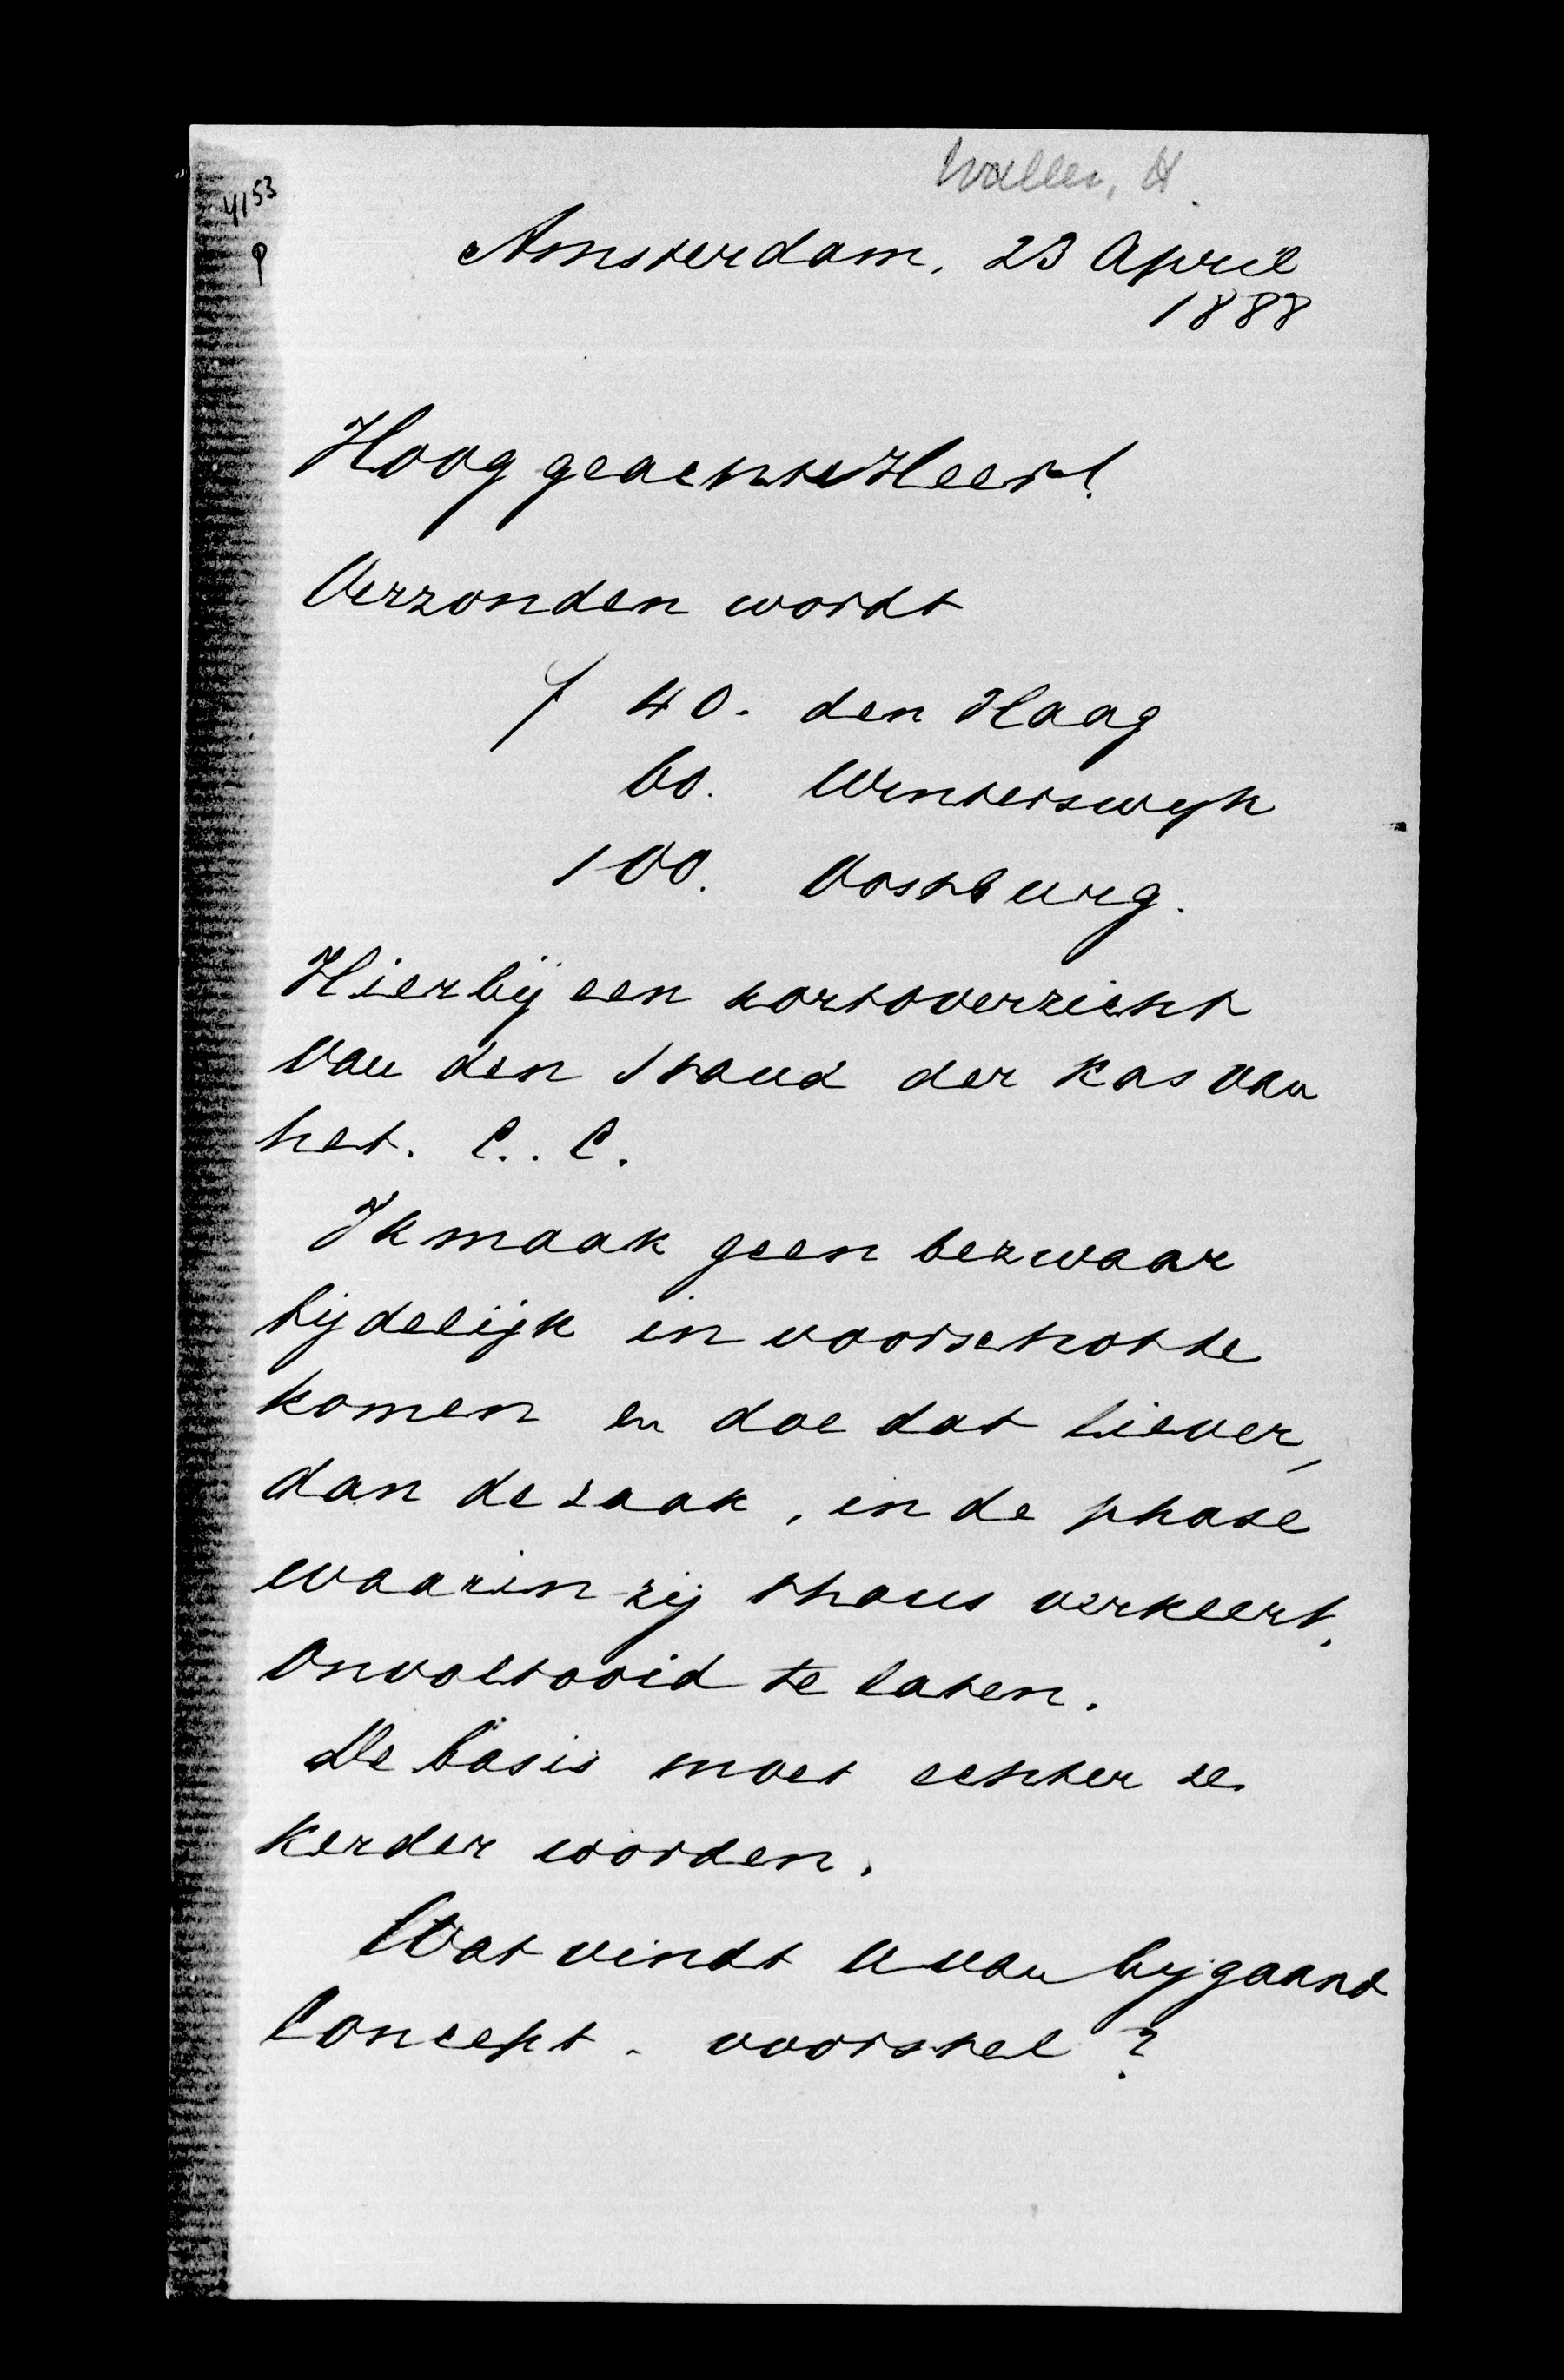 Waller, H.
4153
Amsterdam, 23 April
1888
Hooggeachte Heer!
Verzonden wordt
f 40. den Haag
60. Winterswyk
100. Oostburg.
Hierbij een kort overzicht
van den stand der kas van
het. C.. C.
Ik maak geen bezwaar
tijdelijk in voorschot te
komen en doe dat liever,
dan de zaak, in de phase
waarin zij thans verkeert,
onvoltooid te laten.
De basis moet echter ze
kerder worden.
Wat vindt U van bijgaand
Concept-voorstel?